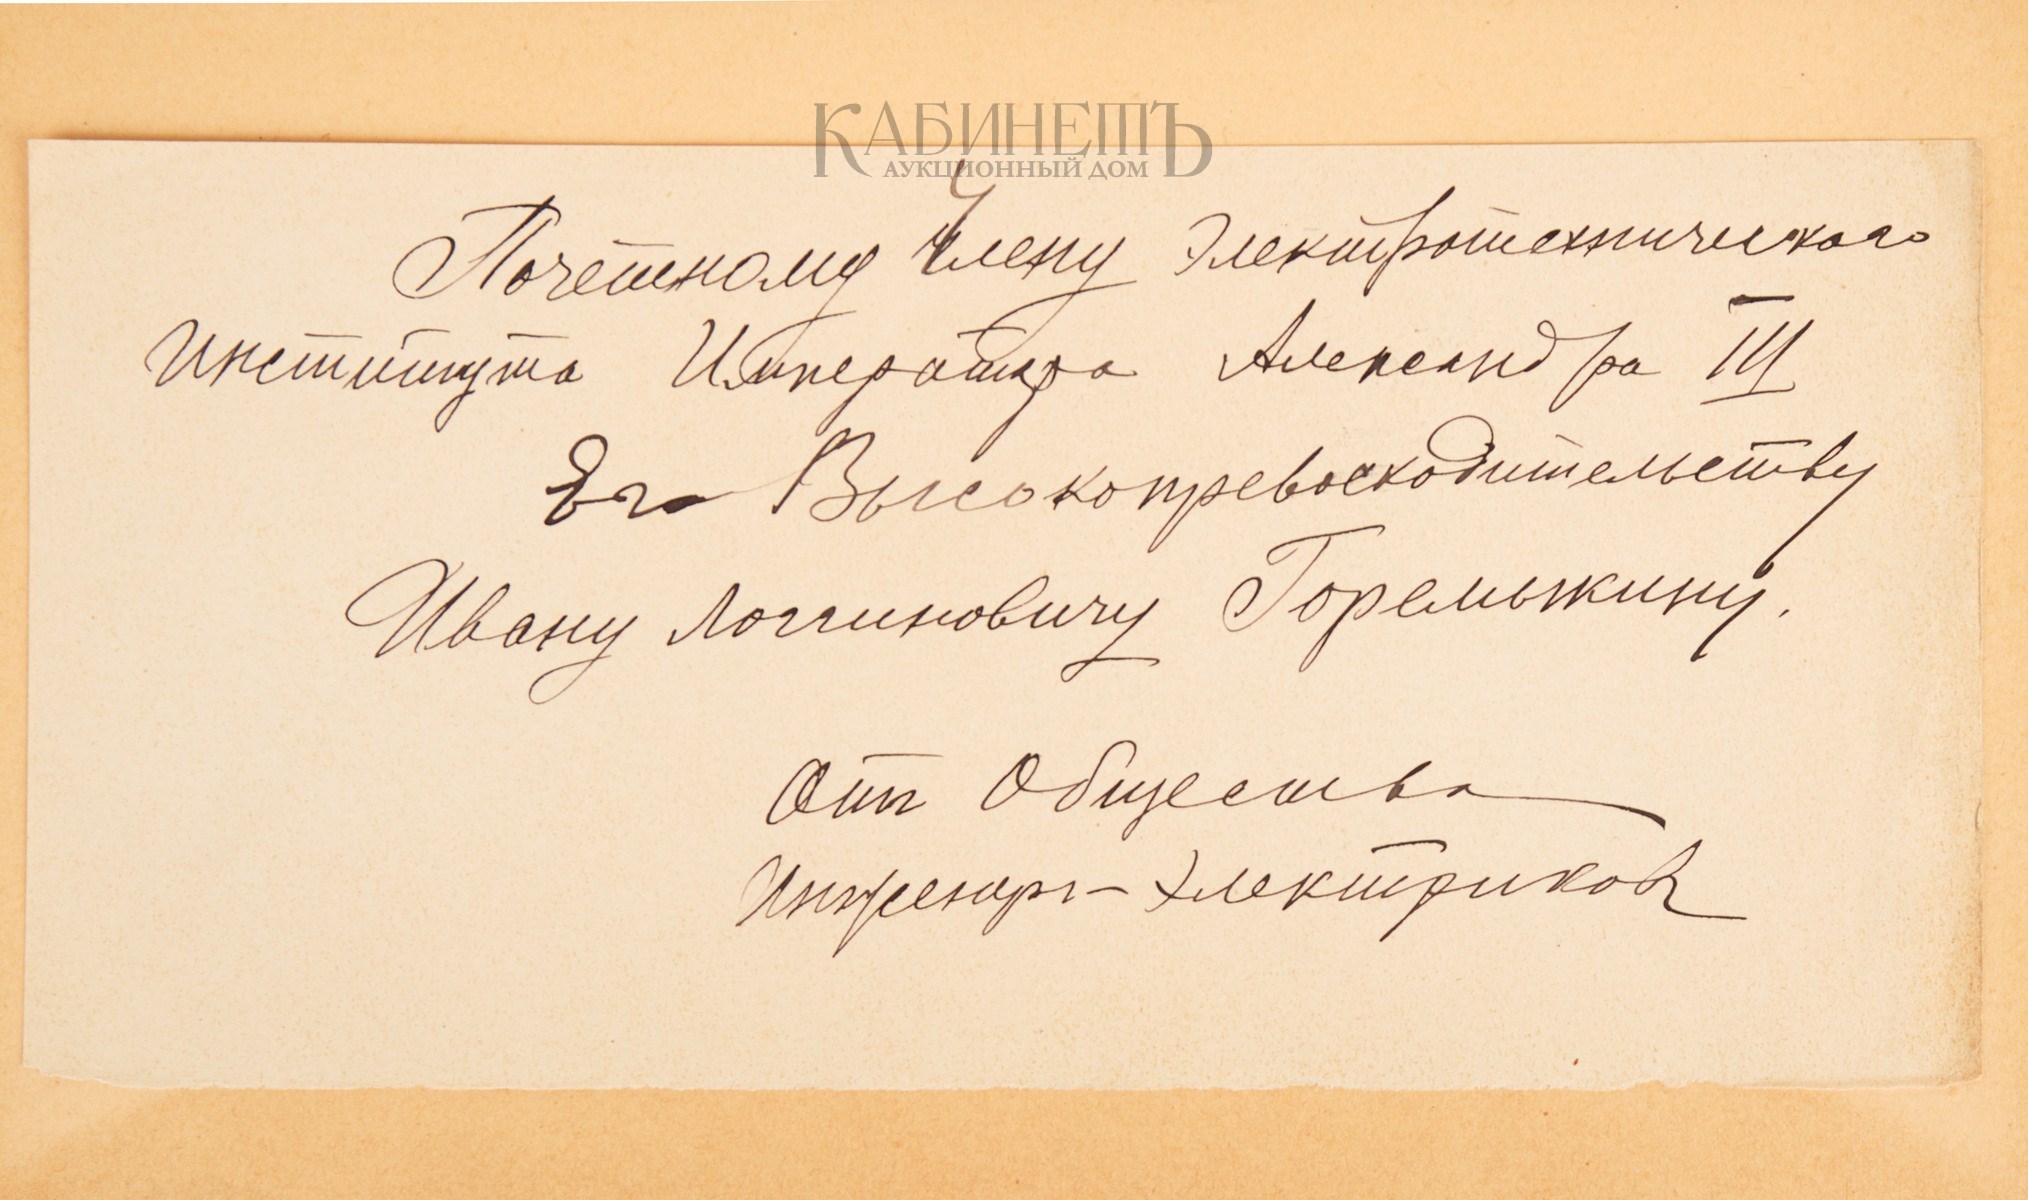 КАБИНЕТЪ
АУКЦИОННЫЙ ДОМ
Почетному Члену Электротехническаго
Института Императора Александра III
Его Высокопревосходительству
Ивану Логгиновичу Горемыкину.
Отъ Общества
Инженеръ-Электриковъ